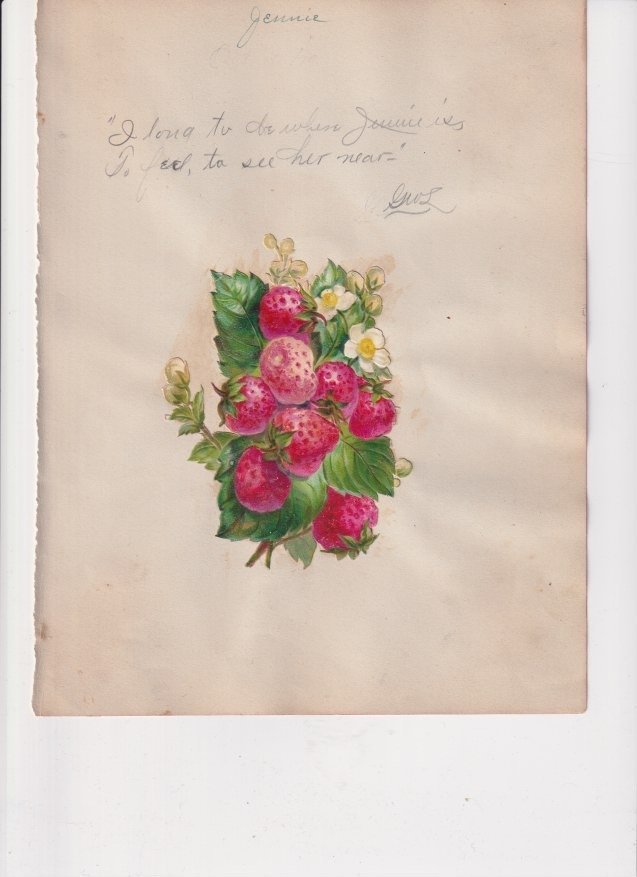 Jennie
"I long to be where Jennie is,
To feel, to see her near-"